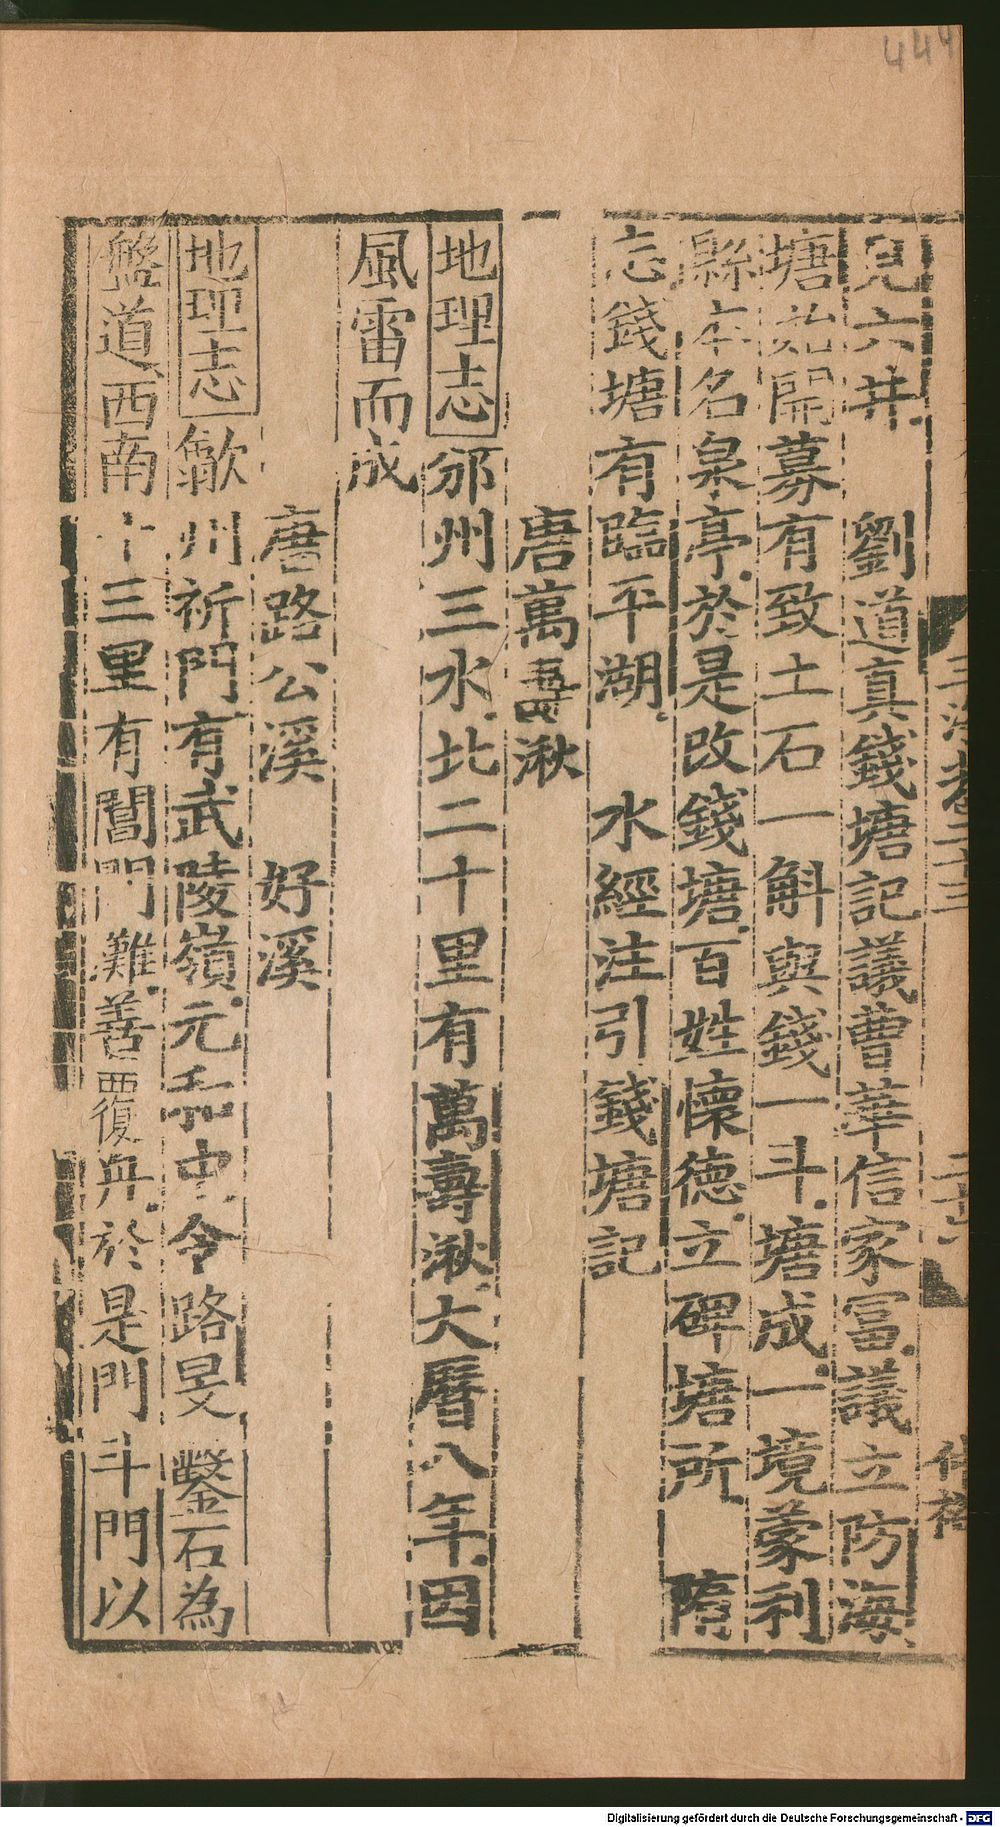 444
玉海卷二十三
見六井　劉道真錢塘記議曹華信家富議立防海
塘始開募有致土石一斛與錢一斗塘成一境蒙利
縣本名泉亭於是改錢塘百姓懷德立碑塘所　隋
志錢塘有臨平湖　水經注引錢塘記
唐萬壽湫
地理志邠州三水北二十里有萬壽湫大曆八年因
風雷而成
唐路公溪　好溪
地理志歙州祈門有武陵嶺元和中令路旻鑿石為
盤道西南十三里有閶門灘善覆舟於是門斗門以
Digitalisierung gefördert durch die Deutsche Forschungsgemeinschaft - DFG